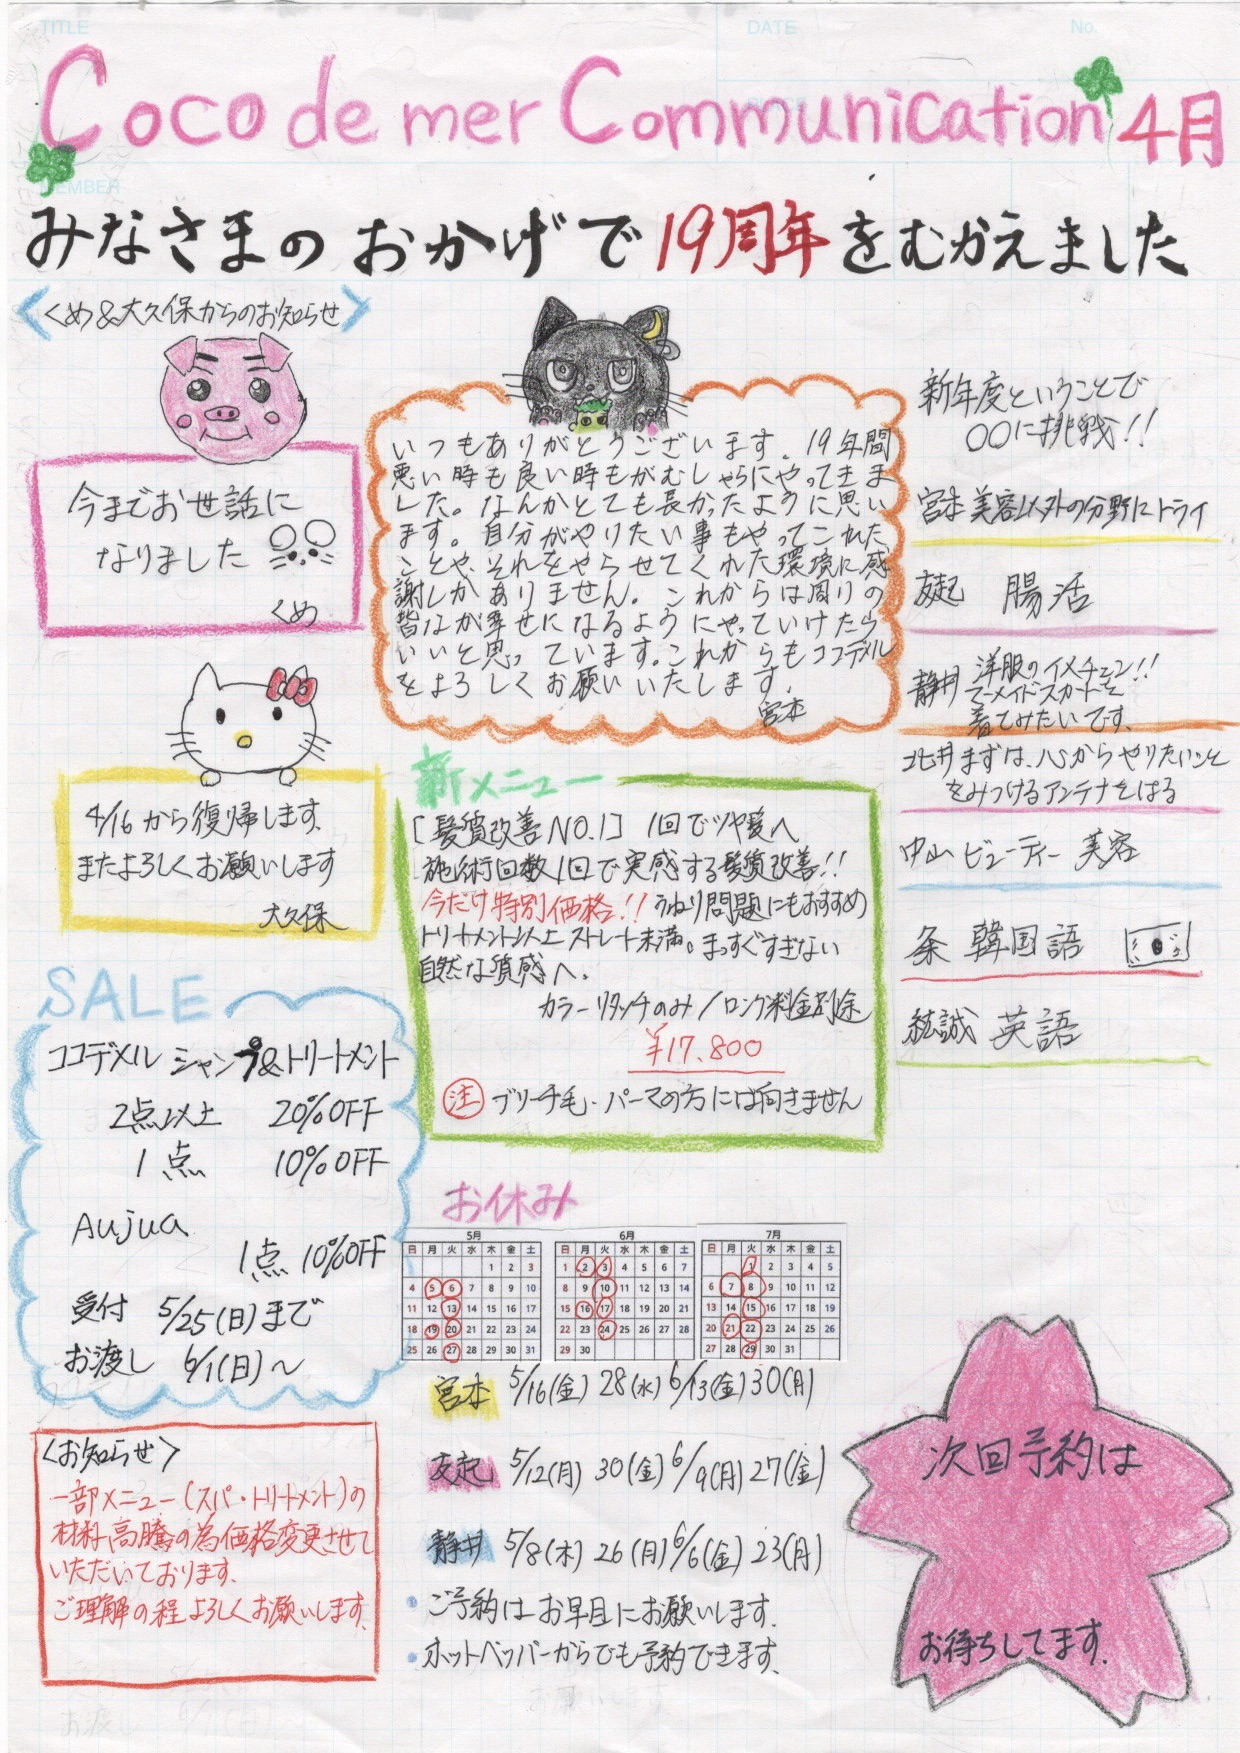 TITLE
DATE
No.
Coco de mer Communication 4月
MEMBER
みなさまの おかげで 19周年をむかえました
くめ&大久保からのお知らせ
今までお世話に
なりました
くめ
4/16 から復帰します、
またよろしくお願いします
大久保
いつもありがとうございます。19年間
悪い時も良い時もがむしゃらにやってきま
した。なんかとても長かったように思い
ます。自分がやりたい事もやってこれた
ことや、それをやらせてくれた環境に感
謝しかありません。これからは周りの
皆なが幸せになるようにやっていけたら
いいと思っています。これからもココデメル
をよろしくお願いいたします。
宮本
新年度ということで
〇〇に挑戦!!
宮本 美容以外の分野にトライ
友起 腸活
静井 洋服のイメチェン!!
マーメイドスカートを
着てみたいです。
北井 まずは、心からやりたいこと
をみつけるアンテナをはる
中山 ビューティー 美容
条 韓国語
紘誠 英語
新メニュー
[髪質改善NO.1] 1回でツヤ髪へ
施術回数1回で実感する髪質改善!!
今だけ特別価格!! うねり問題にもおすすめ
トリートメント以上ストレート未満。まっすぐすぎない
自然な質感へ。
カラーリタッチのみ/ロング料金別途
¥17,800
注 ブリーチ毛・パーマの方には向きません
SALE
ココデメル シャンプ&トリートメント
2点以上 20%OFF
1点 10%OFF
Aujua
1点 10%OFF
受付 5/25(日)まで
お渡し 6/1(日)~
<お知らせ>
一部メニュー(スパ・トリートメント)の
材料高騰の為価格変更させて
いただいております、
ご理解の程よろしくお願いします、
お休み
5月
日 月 火 水 木 金 土
1 2 3
4 5 6 7 8 9 10
11 12 13 14 15 16 17
18 19 20 21 22 23 24
25 26 27 28 29 30 31
6月
日 月 火 水 木 金 土
1 2 3 4 5 6 7
8 9 10 11 12 13 14
15 16 17 18 19 20 21
22 23 24 25 26 27 28
29 30
7月
日 月 火 水 木 金 土
1 2 3 4 5
6 7 8 9 10 11 12
13 14 15 16 17 18 19
20 21 22 23 24 25 26
27 28 29 30 31
宮本 5/16(金) 28(水) 6/13(金) 30(月)
友起 5/12(月) 30(金) 6/9(月) 27(金)
静井 5/8(木) 26(月) 6/6(金) 23(月)
・ご予約はお早目にお願いします。
・ホットペッパーからでも予約できます、
次回予約は
お待ちしてます。